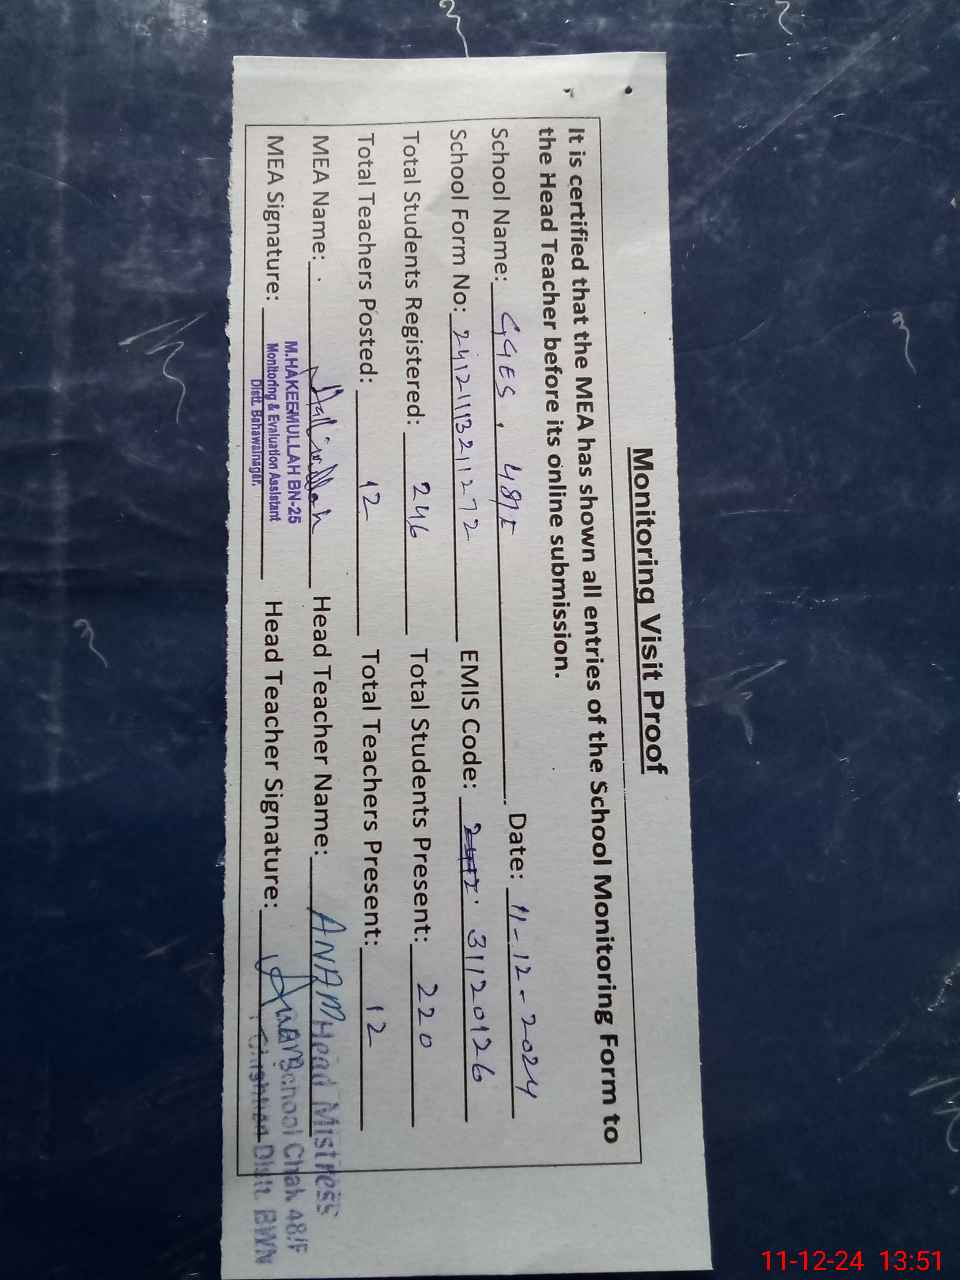 Monitoring Visit Proof
It is certified that the MEA has shown all entries of the School Monitoring Form to
the Head Teacher before its online submission.
School Name: GGES, 48/F Date: 11-12-2024
School Form No: 2412111321 1272 EMIS Code: 31120126
Total Students Registered: 246 Total Students Present: 220
Total Teachers Posted: 12 Total Teachers Present: 12
MEA Name: Head Teacher Name: ANAM
MEA Signature: Head Teacher Signature:
M.HAKEEMULLAH BN-25
Monitoring & Evaluation Assistant
Distt. Bahawalnagar.
Head Mistress
School Chak 48/F
Distt. BWN
11-12-24 13:51